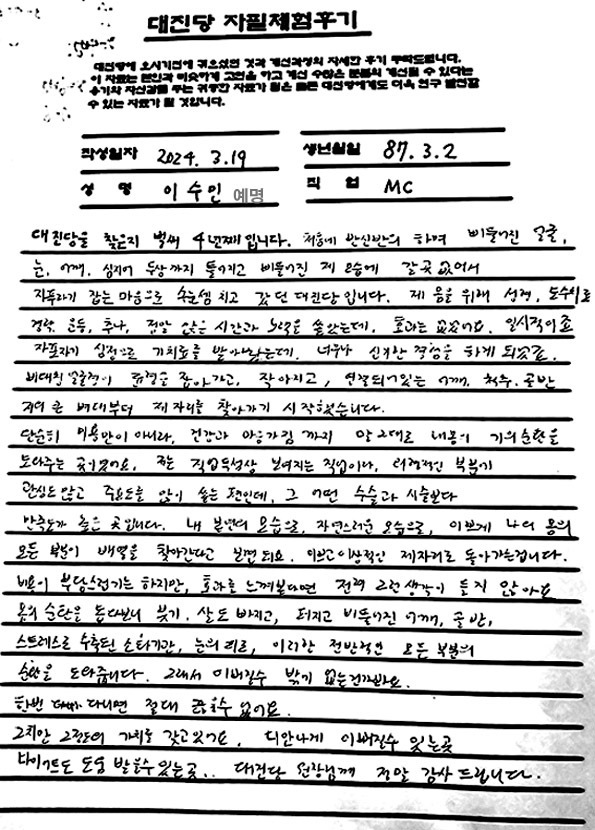 대진당 자필체험후기
대진당에 오시기전에 겪으셨던 것과 개선과정의 자세한 후기 부탁드립니다.
이 자료는 본인과 비슷하게 고민을 하고 계신 수많은 분들의 개선될 수 있다는
용기와 자신감을 주는 귀중한 자료가 됨은 물론 대진당에게도 더욱 연구 발전할
수 있는 자료가 될 것입니다.
작성일자 2024. 3.19 생년월일 87. 3. 2
성 명 이 수 인 예명 직 업 MC
대진당을 찾은지 벌써 4년째입니다. 처음에 반신반의 하며 삐뚤어진 얼굴,
눈, 어깨, 심지어 두상까지 틀어지고 삐뚤어진 제 모습에 갈곳 없어서
지푸라기 잡는 마음으로 속는셈 치고 갔던 대진당입니다. 제 몸을 위해 성형, 도수치료
경락, 운동, 추나, 정말 많은 시간과 노력을 쏟았는데, 효과는 없었어요. 일시적이죠
자포자기 심정으로 기치료를 받아봤는데, 너무나 신기한 경험을 하게 되었죠.
비대칭 얼굴형이 균형을 잡아가고, 작아지고, 연결되어있는 어깨, 척추, 골반
저의 큰 뼈대부터 제자리를 찾아가기 시작했습니다.
단순히 미용만이 아니라, 건강과 마음가짐 까지 말 그대로 내몸의 기의순환을
도와주는 곳이였어요. 저는 직업특성상 보여지는 직업이라, 외형적인 부분에
관심도 많고 주요도를 많이 쏟는 편인데, 그 어떤 수술과 시술보다
만족도가 높은 곳입니다. 내 본연의 모습으로, 자연스러운 모습으로, 이쁘게 나의 몸의
모든 부분이 배열을 찾아간다고 보면 되요. 이쁘고 이상적인 제자리로 돌아가는겁니다.
비용이 부담스럽기는 하지만, 효과를 느껴본다면 전혀 그런생각이 들지 않아요
몸의 순환을 돕다보니 붓기, 살도 빠지고, 터지고 삐뚤어진 어깨, 골반,
스트레스로 수축된 소화기관, 눈의 피로, 이러한 전반적인 모든 부분의
순환을 도와줍니다. 그래서 이뻐질수 밖에 없는건가봐요.
한번 다니면 절대 끊을수 없어요.
그치만 그정도의 가치를 갖고있어요. 티안나게 이뻐질수 있는곳
다이어트도 도움 받을수 있는곳.. 대진당 원장님께 정말 감사 드립니다.